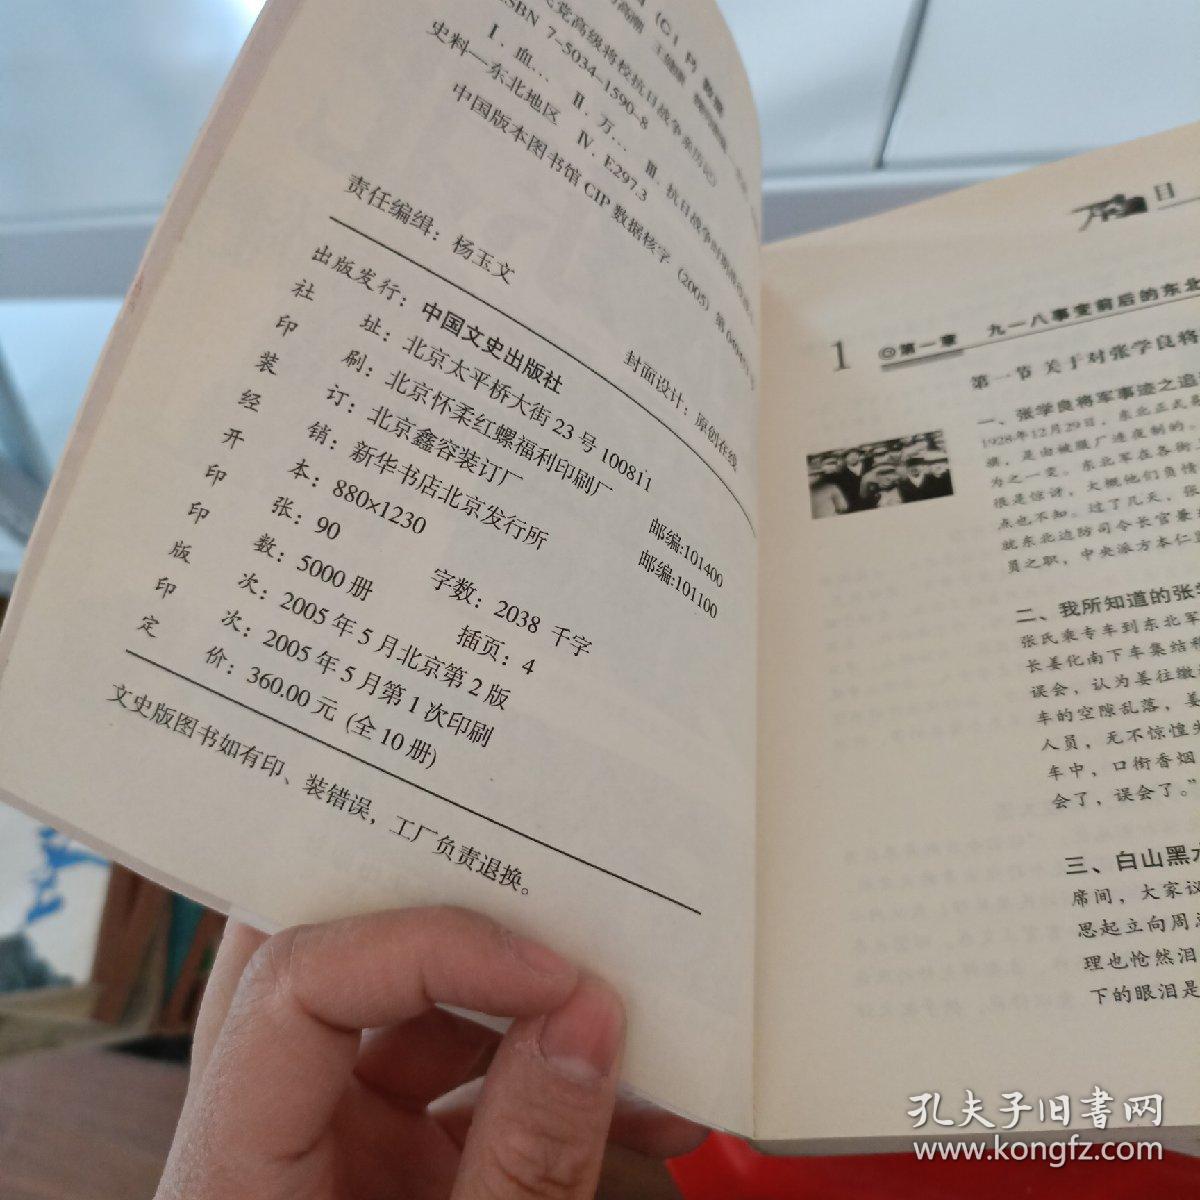 民党高级将校抗日战争亲历记
ISBN 7-5034-1590-8
Ⅰ.血… Ⅱ.万… Ⅲ.抗日战争
史料—东北地区 Ⅳ.E297.3
中国版本图书馆CIP数据核字（2005）第
责任编缉：杨玉文
封面设计：原创在线
出版发行：中国文史出版社
社 址：北京太平桥大街23号 100811
印 刷：北京怀柔红螺福利印刷厂 邮编:101400
装 订：北京鑫容装订厂 邮编:101100
经 销：新华书店北京发行所
开 本：880x1230
印 张：90 字数：2038 千字
印 数：5000 册 插页：4
版 次：2005年5月北京第2版
印 次：2005年5月第1次印刷
定 价：360.00元 (全10册)
文史版图书如有印、装错误，工厂负责退换。
目
1
◎第一章 九一八事变前后的东北
第一节 关于对张学良将
一、张学良将军事迹之追
1928年12月29日，东北正式易
旗，是由被服厂连夜制的。
为之一变。东北军在各街
很是惊讶，大概他们负情
点也不知。过了几天，张
就东北边防司令长官兼
员之职，中央派方本仁
二、我所知道的张学
张氏乘专车到东北军
长姜化南下车集结
误会，认为姜往缴
车的空隙乱落，姜
人员，无不惊惶失
车中，口衔香烟
会了，误会了。”
三、白山黑水
席间，大家议
思起立向周
理也怆然泪
下的眼泪是
孔夫子旧书网
www.kongfz.com